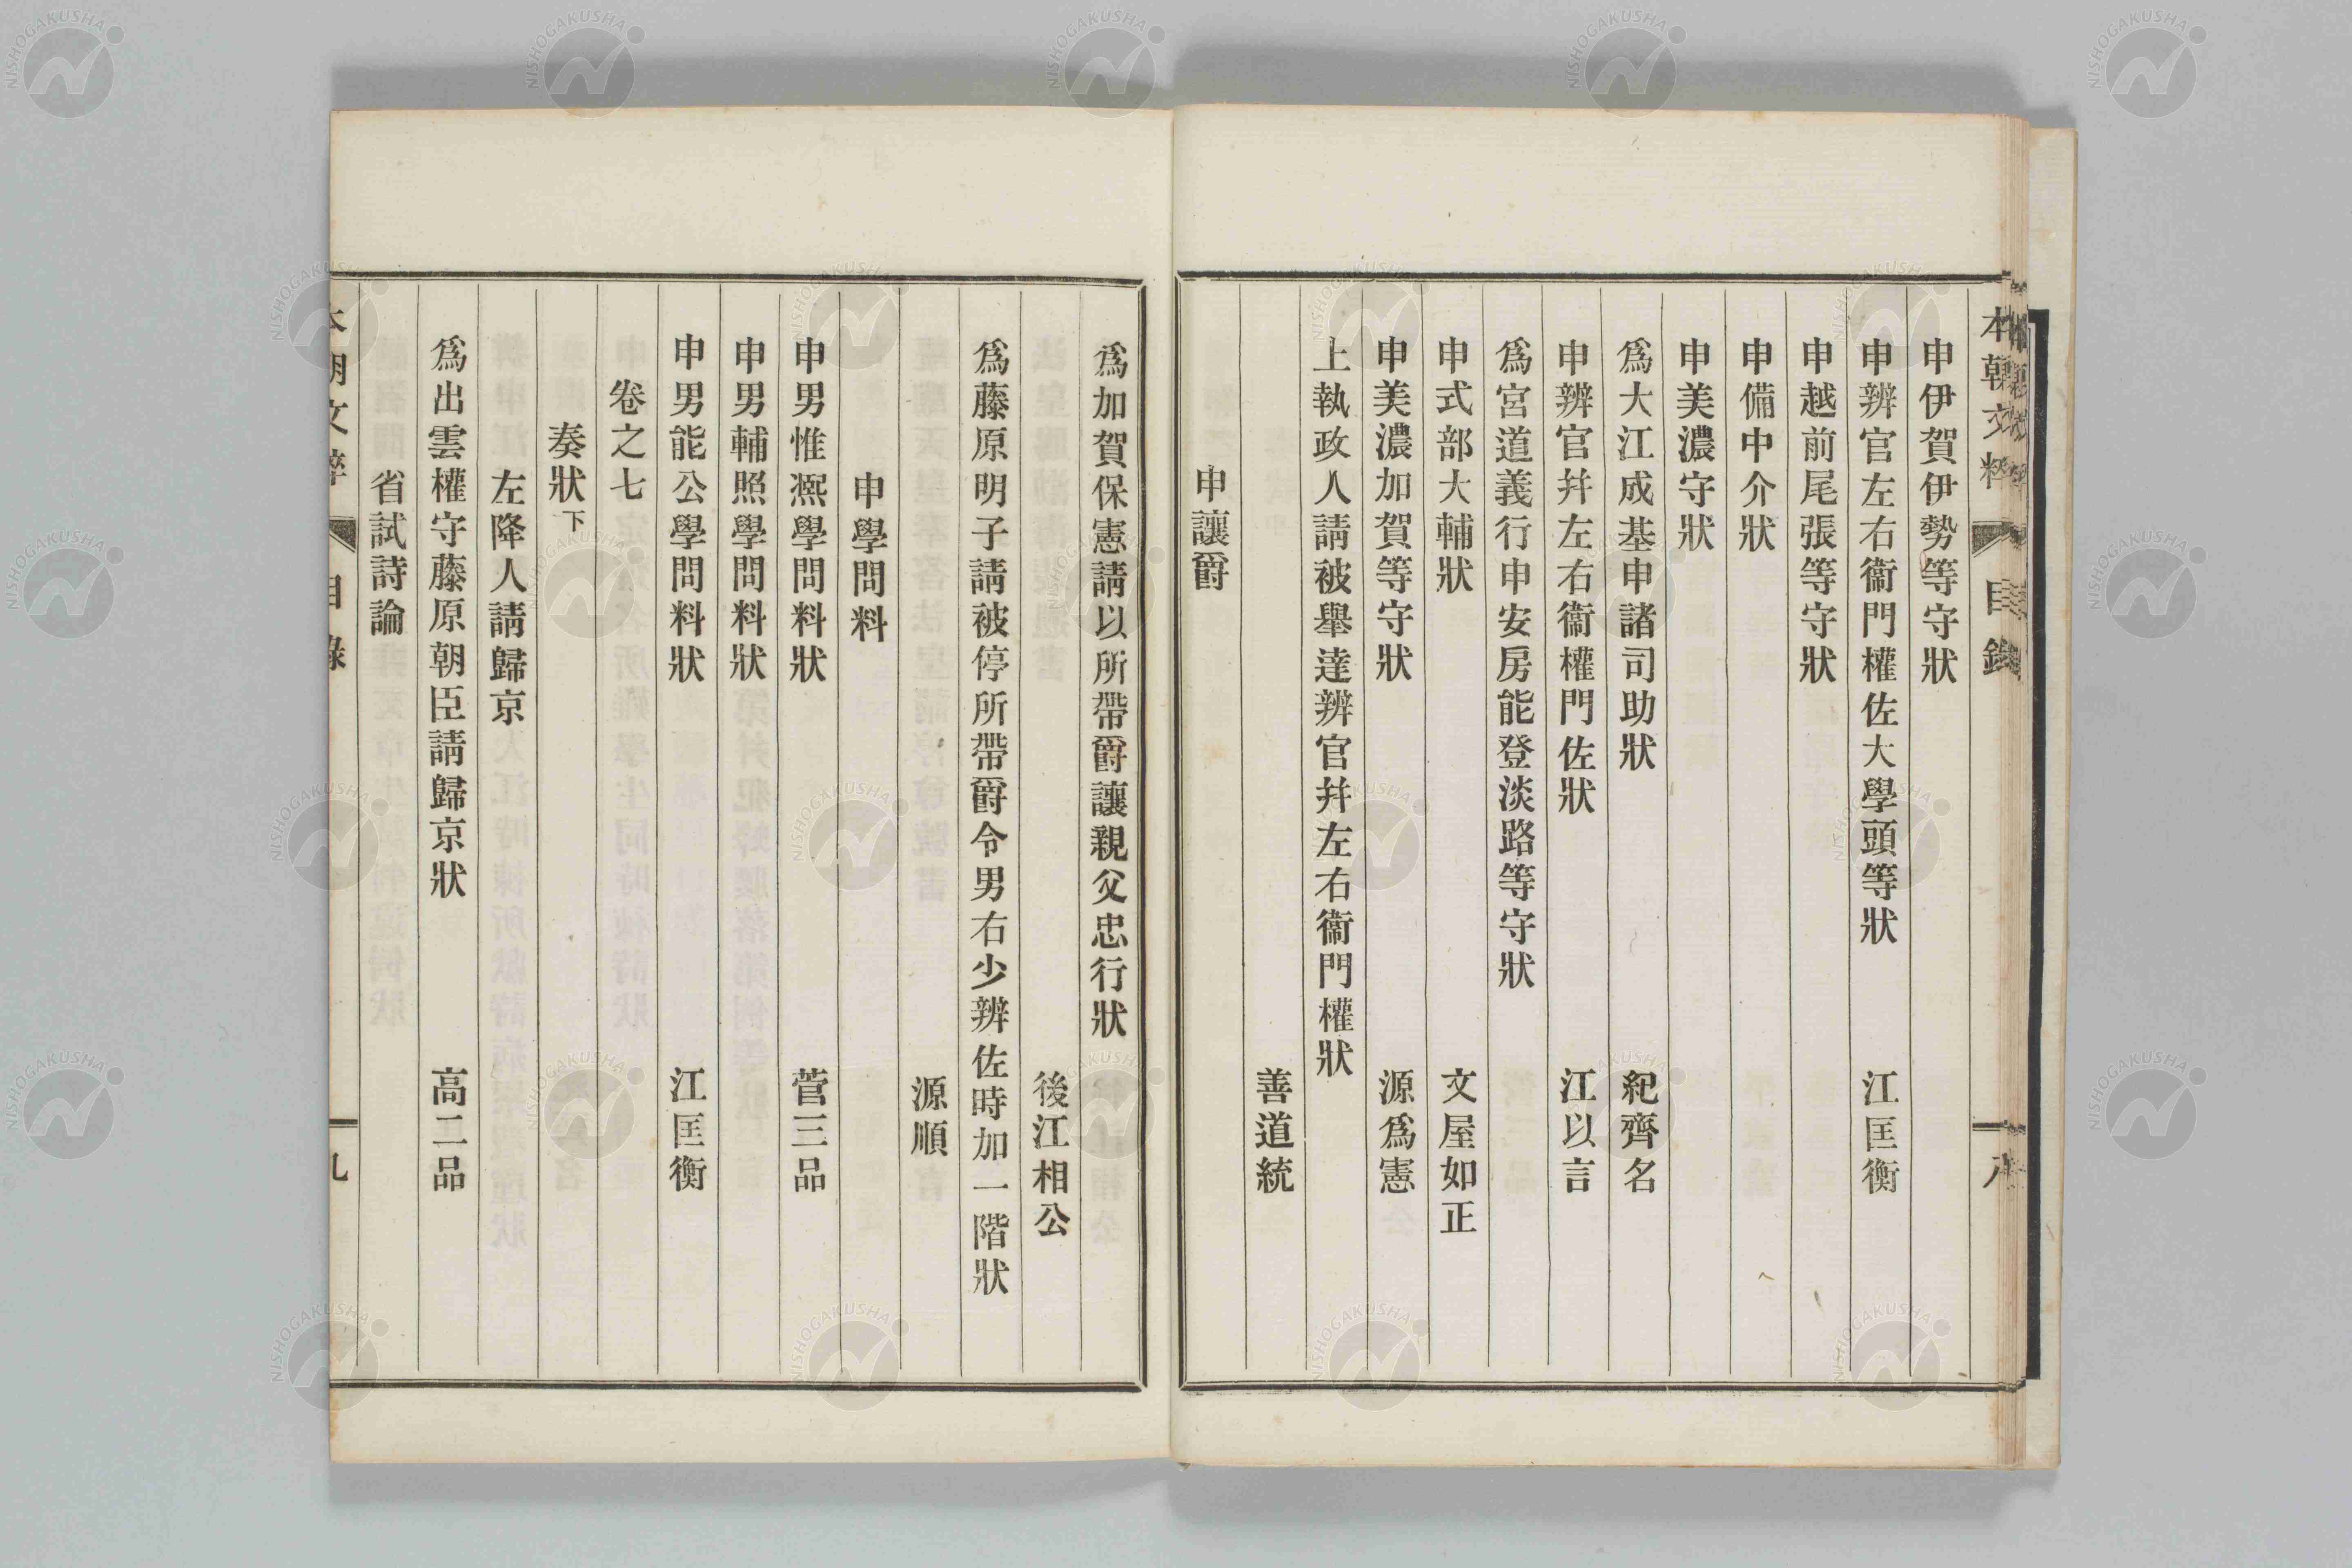 本朝文粹 目錄 八
申伊賀伊勢等守狀
申辨官左右衞門權佐大學頭等狀 江匡衡
申越前尾張等守狀
申備中介狀
申美濃守狀
爲大江成基申諸司助狀 紀齊名
申辨官幷左右衞權門佐狀 江以言
爲宮道義行申安房能登淡路等守狀
申式部大輔狀 文屋如正
申美濃加賀等守狀 源爲憲
上執政人請被舉達辨官幷左右衞門權狀
善道統
申讓爵
爲加賀保憲請以所帶爵讓親父忠行狀
後江相公
爲藤原明子請被停所帶爵令男右少辨佐時加一階狀
源順
申學問料
申男惟熈學問料狀 菅三品
申男輔照學問料狀
申男能公學問料狀 江匡衡
卷之七
奏狀下
左降人請歸京
爲出雲權守藤原朝臣請歸京狀 高二品
省試詩論
本朝文粹 目錄 九
NISHOGAKUSHA